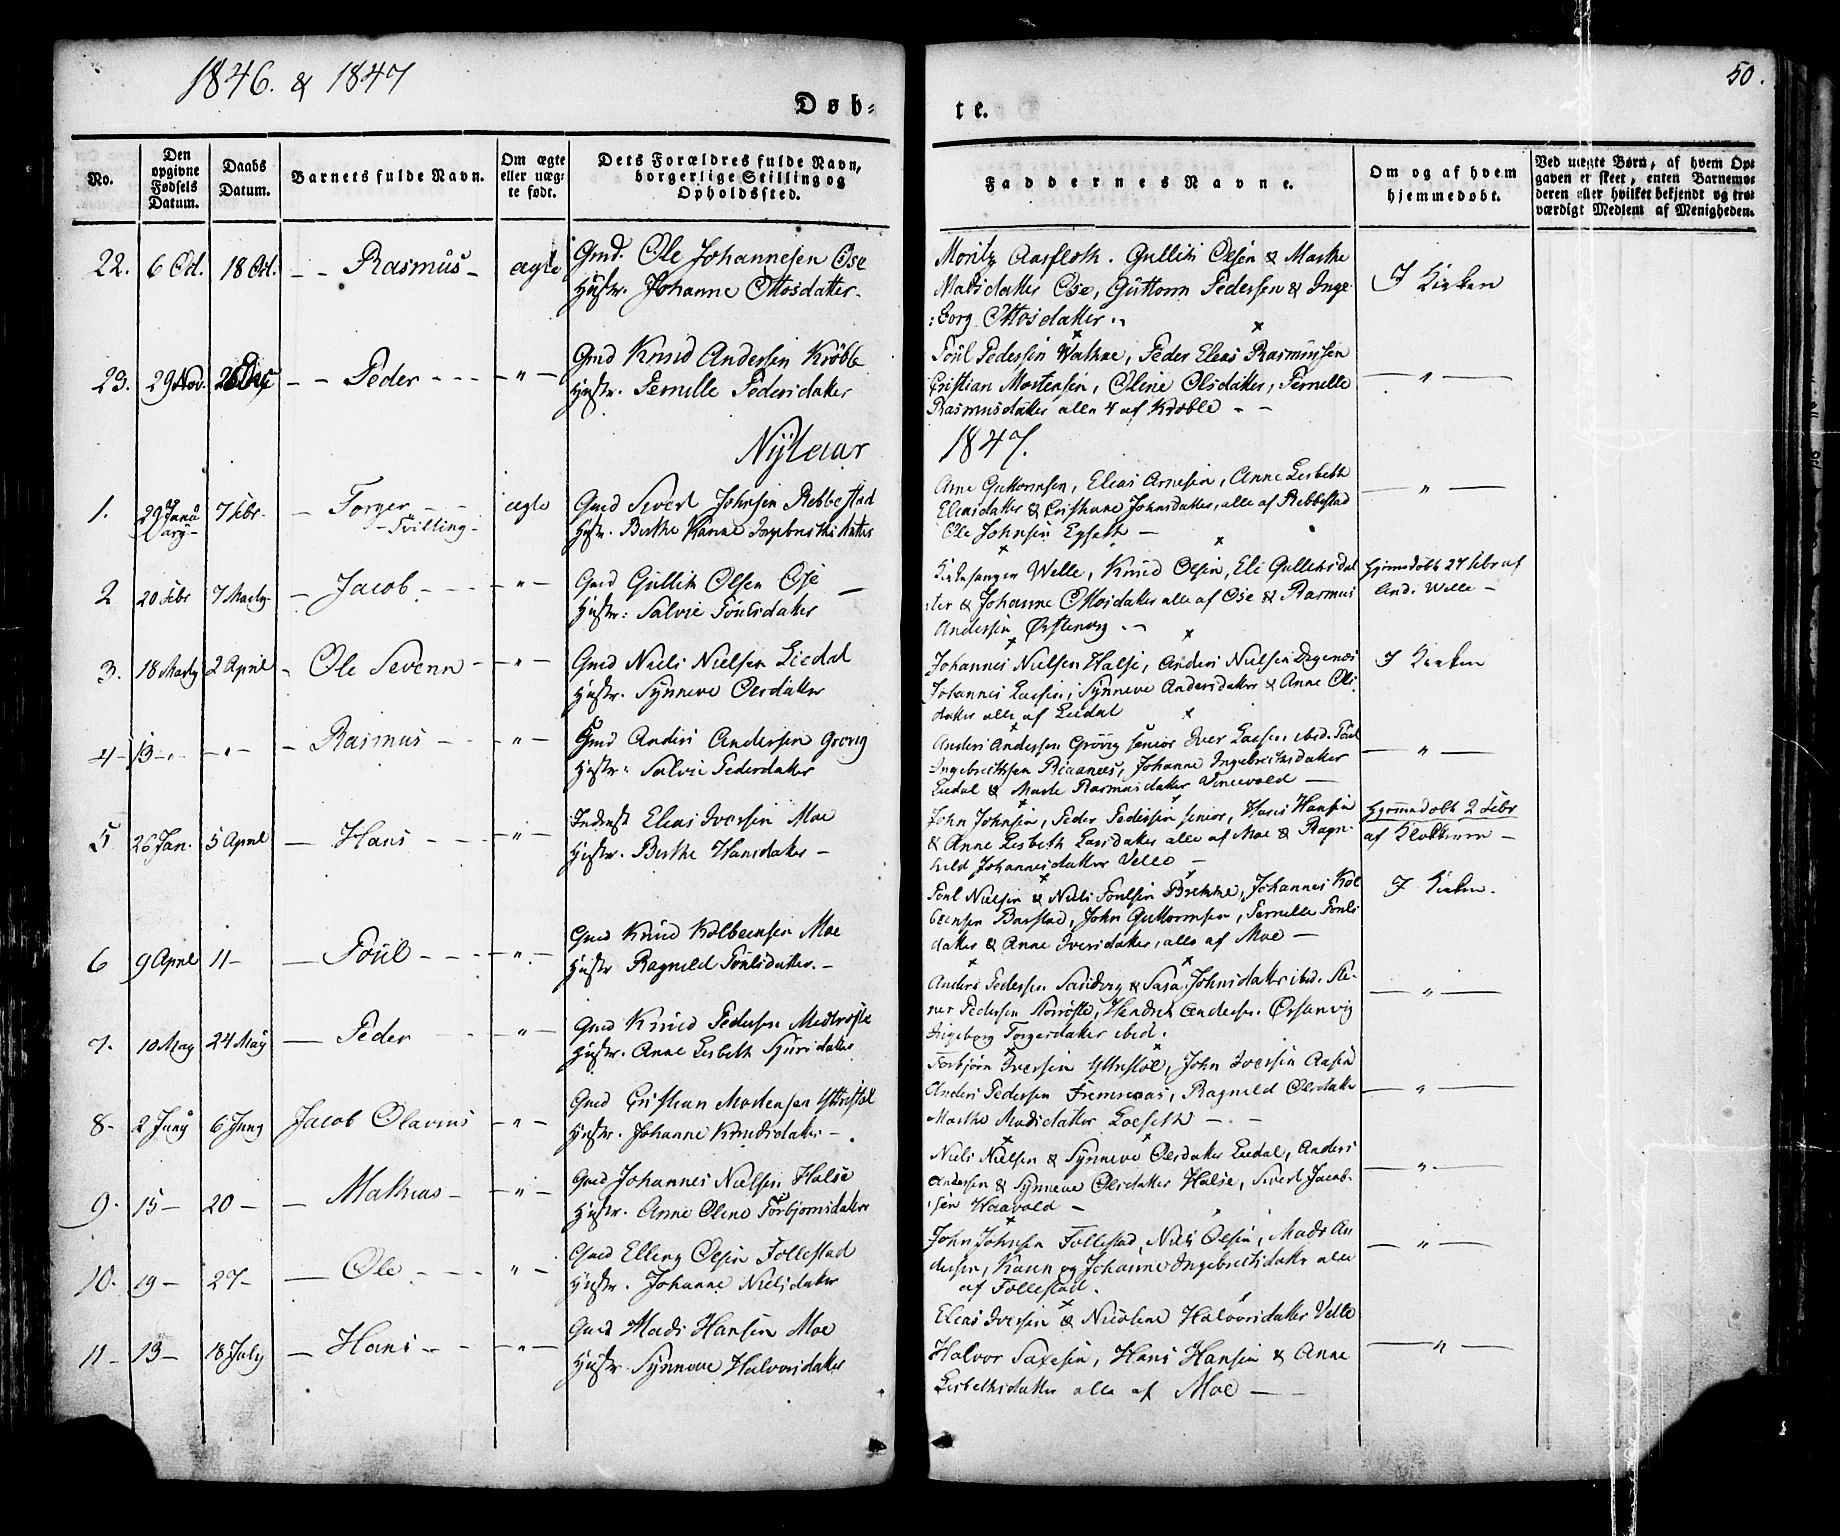 1846. & 1847
50.
Døb-
te.
No.
Den opgivne Fødsels Datum.
Daabs Datum.
Barnets fulde Navn.
Om ægte eller uæg-te født.
Dets Forældres fulde Navn, borgerlige Stilling og Opholdssted.
Faddernes Navne.
Om og af hvem hjemmedøbt.
Ved uægte Børn, af hvem Op-
gaven er skeet, enten Barnemo-
deren eller hvilket bekjendt og tro-
værdigt Medlem af Menigheden.
22. 6 Oct. 18 Oct. - - Rasmus - ægte Gmd. Ole Johannesen Ose
Hustr. Johanne Ottosdatter.
Moritz Aarfloth. Gullik Olsen & Marthe
Madsdatter Ose, Guttorm Pedersen & Inge-
:borg Ottosdatter.
I Kirken
23. 29 Nov. - - Peder - - - - " - Gmd Knud Andersen Krøble
Hustr. Pernille Pedersdatter
Poul Pedersen Vathne, Peder Elias Rasmussen
Cristian Mortensen, Oline Olsdatter, Pernille
Rasmusdatter alle 4 af Krøble - -
- " -
Nytaar
1847.
1. 29 Janu
ary - 7 Febr. - Torger - -
- Tvilling - ægte Gmd Sivert Johnsen Rebbestad
Hustr. Berthe Karine Ingebrethsdatter
Arne Guttormsen, Elias Arnesen, Anne Lisbeth
Eliasdatter & Cristiane Johnsdatter, alle af Rebbestad
Ole Johnsen Egseth -
- " -
2 20 Febr 7 Marty - Jacob - - - - " - Gmd Gullik Olsen Ose
Hustr: Salvie Poulsdatter
Kirkesanger Welle, Knud Olsen, Eli Gulliksdat
:ter & Johanne Ottosdatter alle af Ose & Rasmus
Andersen Ørstenvig. -
Hjemmedøbt 27 Febr af
And. Welle -
3. 18 Marty 2 April - Ole Severin - - " - Gmd Niels Nielsen Liedal
Hustr. Synneve Olsdatter
Johannes Nielsen Halse, Anders Nielsen Digenæs
Johannes Larsen, Synneve Andersdatter & Anne Ols
datter alle af Liedal
I Kirken
4 - 13 - " - - " - - Rasmus - - - " - Gmd Anders Andersen Grøvig
Hustr: Salvie Pedersdatter
Anders Andersen Grøvig senior Iver Larsen ibid. Poul
Ingebrethsen Riaanæs, Johanne Ingebrethsdatter
Liedal & Marte Rasmusdatter Vinevold -
- " -
5 26 Jan. 5 April - Hans - - - - " - Inderst Elias Iversen Moe
Hustr. Berthe Hansdatter -
John Johnsen, Peder Pedersen senior, Hans Hansen
& Anne Lisbeth Larsdatter alle af Moe & Ragn-
hild Johannesdatter Velle -
Hjemmedøbt 2 Febr
af Klokkeren -
6 9 April 11 - - Poul - - - - " - Gmd Knud Kolbeensen Moe
Hustr Ragnild Poulsdatter. -
Poul Nielsen & Niels Poulsen Brekke, Johannes Kol
beensen Barstad, John Guttormsen, Pernille Pouls
datter & Anne Iversdatter, alle af Moe -
I Kirken.
7. 10 May 24 May - Peder - - " - Gmd Knud Pedersen Melrøste
Hustr. Anne Lisbeth Sjursdatter
Anders Pedersen Sandvig & Sara Johnsdatter ibid. Ste-
ner Pedersen Norrøste, Hendrik Anderss. Ørstenvig
Ingeborg Torgersdatter ibid.
- " -
8 - 2 Juny 6 Juny Jacob Olavius - " - Gmd Cristian Mortensen Ytrestøl
Hustr. Johanne Knudsdatter -
Torbjørn Iversen Ytrestøl, John Iversen Aasen
Anders Pedersen Fremsnæs, Ragnild Olsdatter
Marthe Madsdatter Løeseth - -
- " -
9. 15 - 20 - - Mathias - - " - Gmd Johannes Nielsen Halse
Hustr. Anne Oline Torbjørnsdatter
Niels Nielsen & Synneve Olsdatter Liedal, Anders
Andersen & Synneve Olsdatter Halse, Sivert Jacob-
:sen Haavold -
- " -
10. 19 - 27 - - Ole - - - - " - Gmd Elling Olsen Follestad
Hustr. Johanne Nielsdatter
John Johnsen Follestad, Niels Olsen, Mads An
dersen, Karen og Johanne Ingebretsdatter alle
af Follestad.
- " -
11 - 13 - 18 July - Hans - - - " - Gmd Mads Hansen Moe
Hustr. Synneve Halvorsdatter
Elias Iversen & Nicoline Halvorsdatter Velle
Halvor Saxesen, Hans Hansen & Anne
Lisbethsdatter alle af Moe - -
- " -